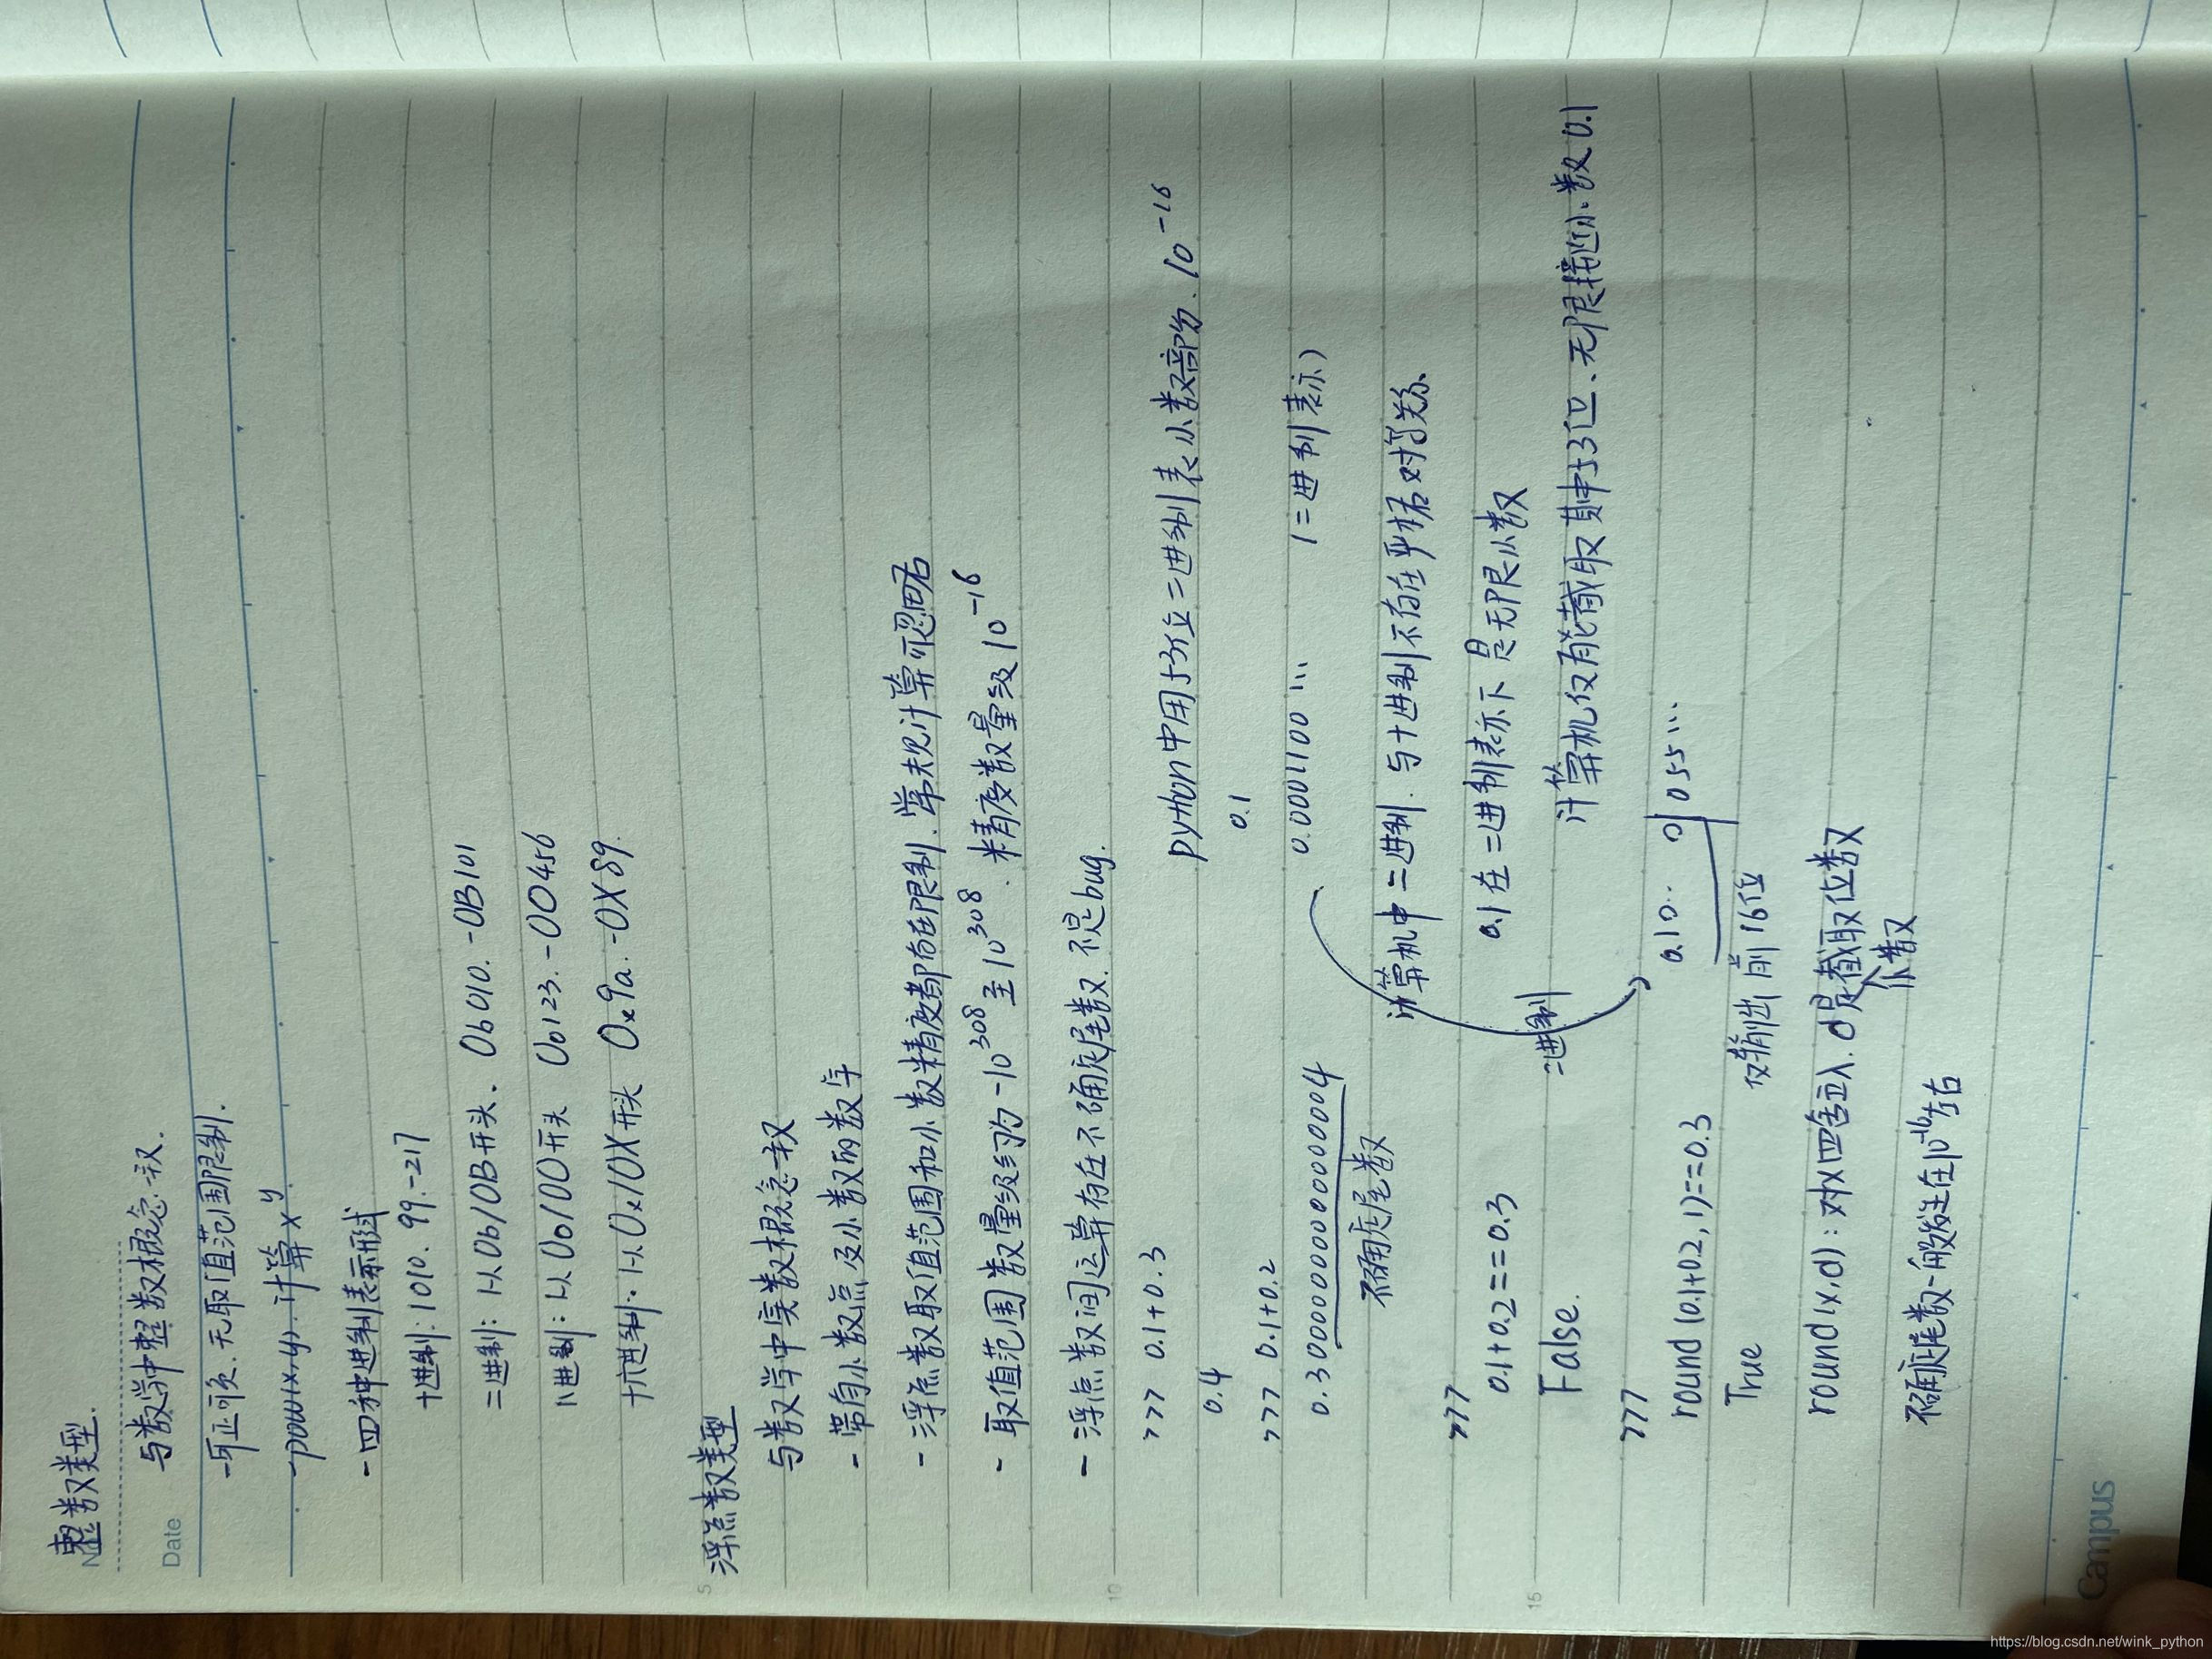 整数类型.
Date
与数学中整数概念一致.
-可正可负.无取值范围限制.
-pow(x,y).计算x^y
-四种进制表示形式
十进制:1010.99.-217
二进制:以0b/0B开头、0b010.-0B101
八进制:以0o/0O开头 0o123.-0O456
十六进制.以0x/0X开头 0x9a.-0X89.
5
浮点数类型
与数学中实数概念一致
-带有小数点及小数的数字
-浮点数取值范围和小数精度都存在限制.常规计算可忽略
-取值范围数量级约为-10^308至10^308.精度数量级10^-16
-浮点数间运算存在不确定尾数.不是bug.
10
>>> 0.1+0.3
0.4
>>> 0.1+0.2
0.30000000000000004
不确定尾数
python中用53位二进制表小数部分.10^-16
0.1
0.0001100... (二进制表示)
计算机中二进制.与十进制不存在严格对等关系
0.1在二进制表示下是无限小数
计算机仅有能截取其中53位、无限接近小数0.1
二进制
0.10...0|055...
仅输出前16位
15
>>>
0.1+0.2==0.3
False.
>>>
round(0.1+0.2,1)==0.3
True
round(x,d):对x四舍五入.d是截取位数
小数
不确定尾数一般发生在10^-16左右
Campus
https://blog.csdn.net/wink_python